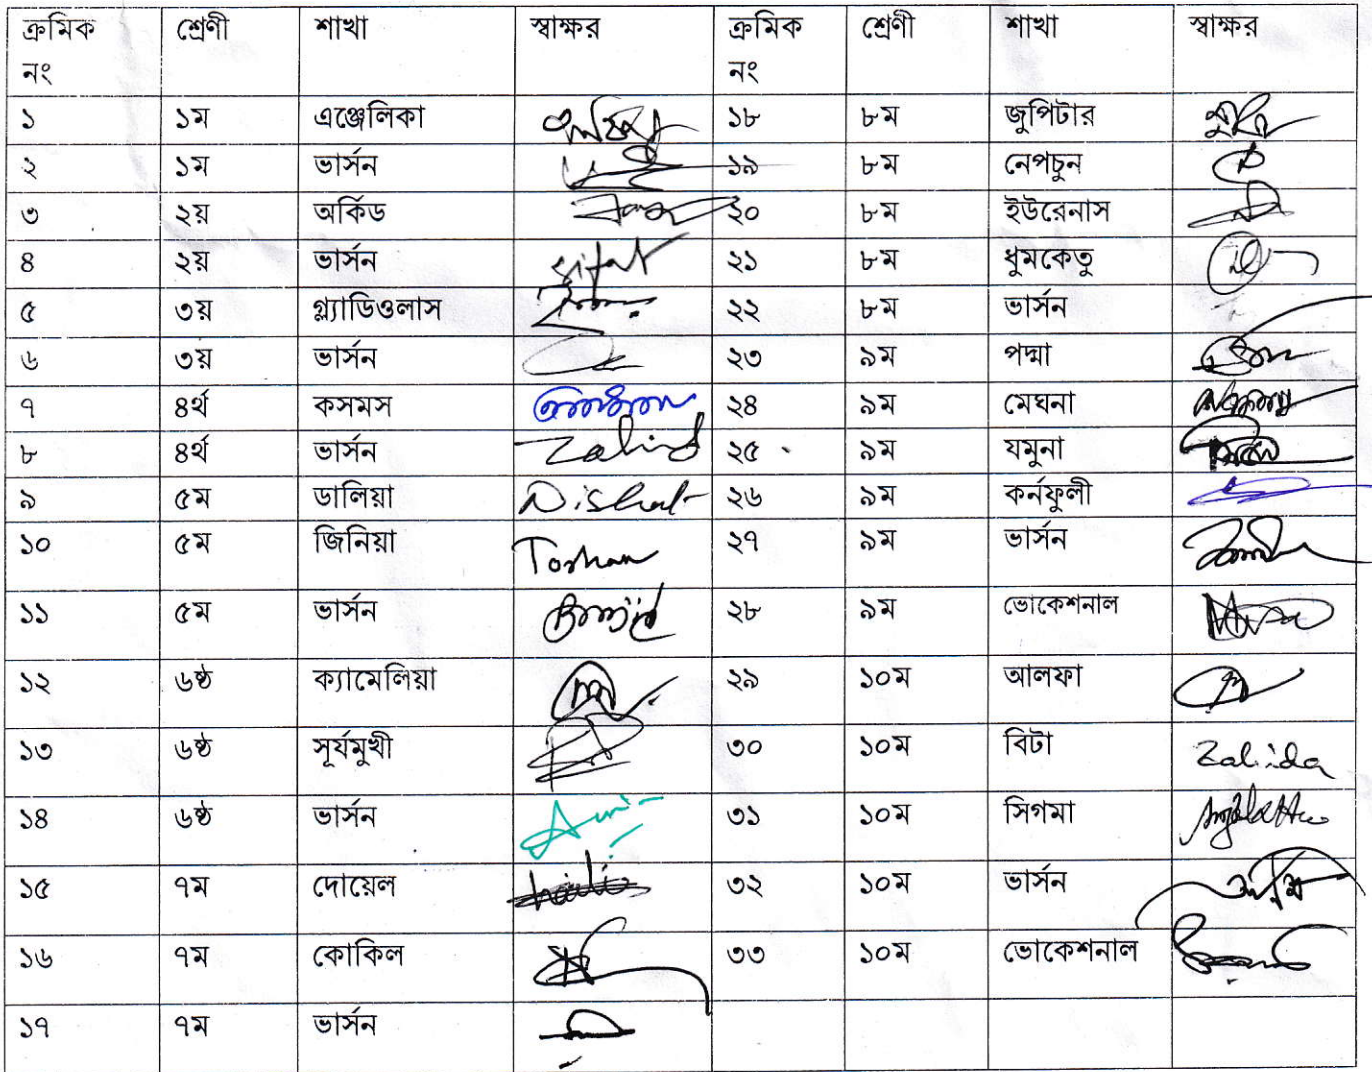 ক্রমিক নং শ্রেণী শাখা স্বাক্ষর ক্রমিক নং শ্রেণী শাখা স্বাক্ষর
১ ১ম এঞ্জেলিকা ১৮ ৮ম জুপিটার
২ ১ম ভার্সন ১৯ ৮ম নেপচুন
৩ ২য় অর্কিড ২০ ৮ম ইউরেনাস
৪ ২য় ভার্সন sifat ২১ ৮ম ধুমকেতু
৫ ৩য় গ্ল্যাডিওলাস ২২ ৮ম ভার্সন
৬ ৩য় ভার্সন ২৩ ৯ম পদ্মা
৭ ৪র্থ কসমস ২৪ ৯ম মেঘনা
৮ ৪র্থ ভার্সন Zahid ২৫ ৯ম যমুনা
৯ ৫ম ডালিয়া ২৬ ৯ম কর্নফুলী
১০ ৫ম জিনিয়া ২৭ ৯ম ভার্সন
১১ ৫ম ভার্সন ২৮ ৯ম ভোকেশনাল
১২ ৬ষ্ঠ ক্যামেলিয়া ২৯ ১০ম আলফা
১৩ ৬ষ্ঠ সূর্যমুখী ৩০ ১০ম বিটা Zahida
১৪ ৬ষ্ঠ ভার্সন ৩১ ১০ম সিগমা
১৫ ৭ম দোয়েল ৩২ ১০ম ভার্সন
১৬ ৭ম কোকিল ৩৩ ১০ম ভোকেশনাল
১৭ ৭ম ভার্সন